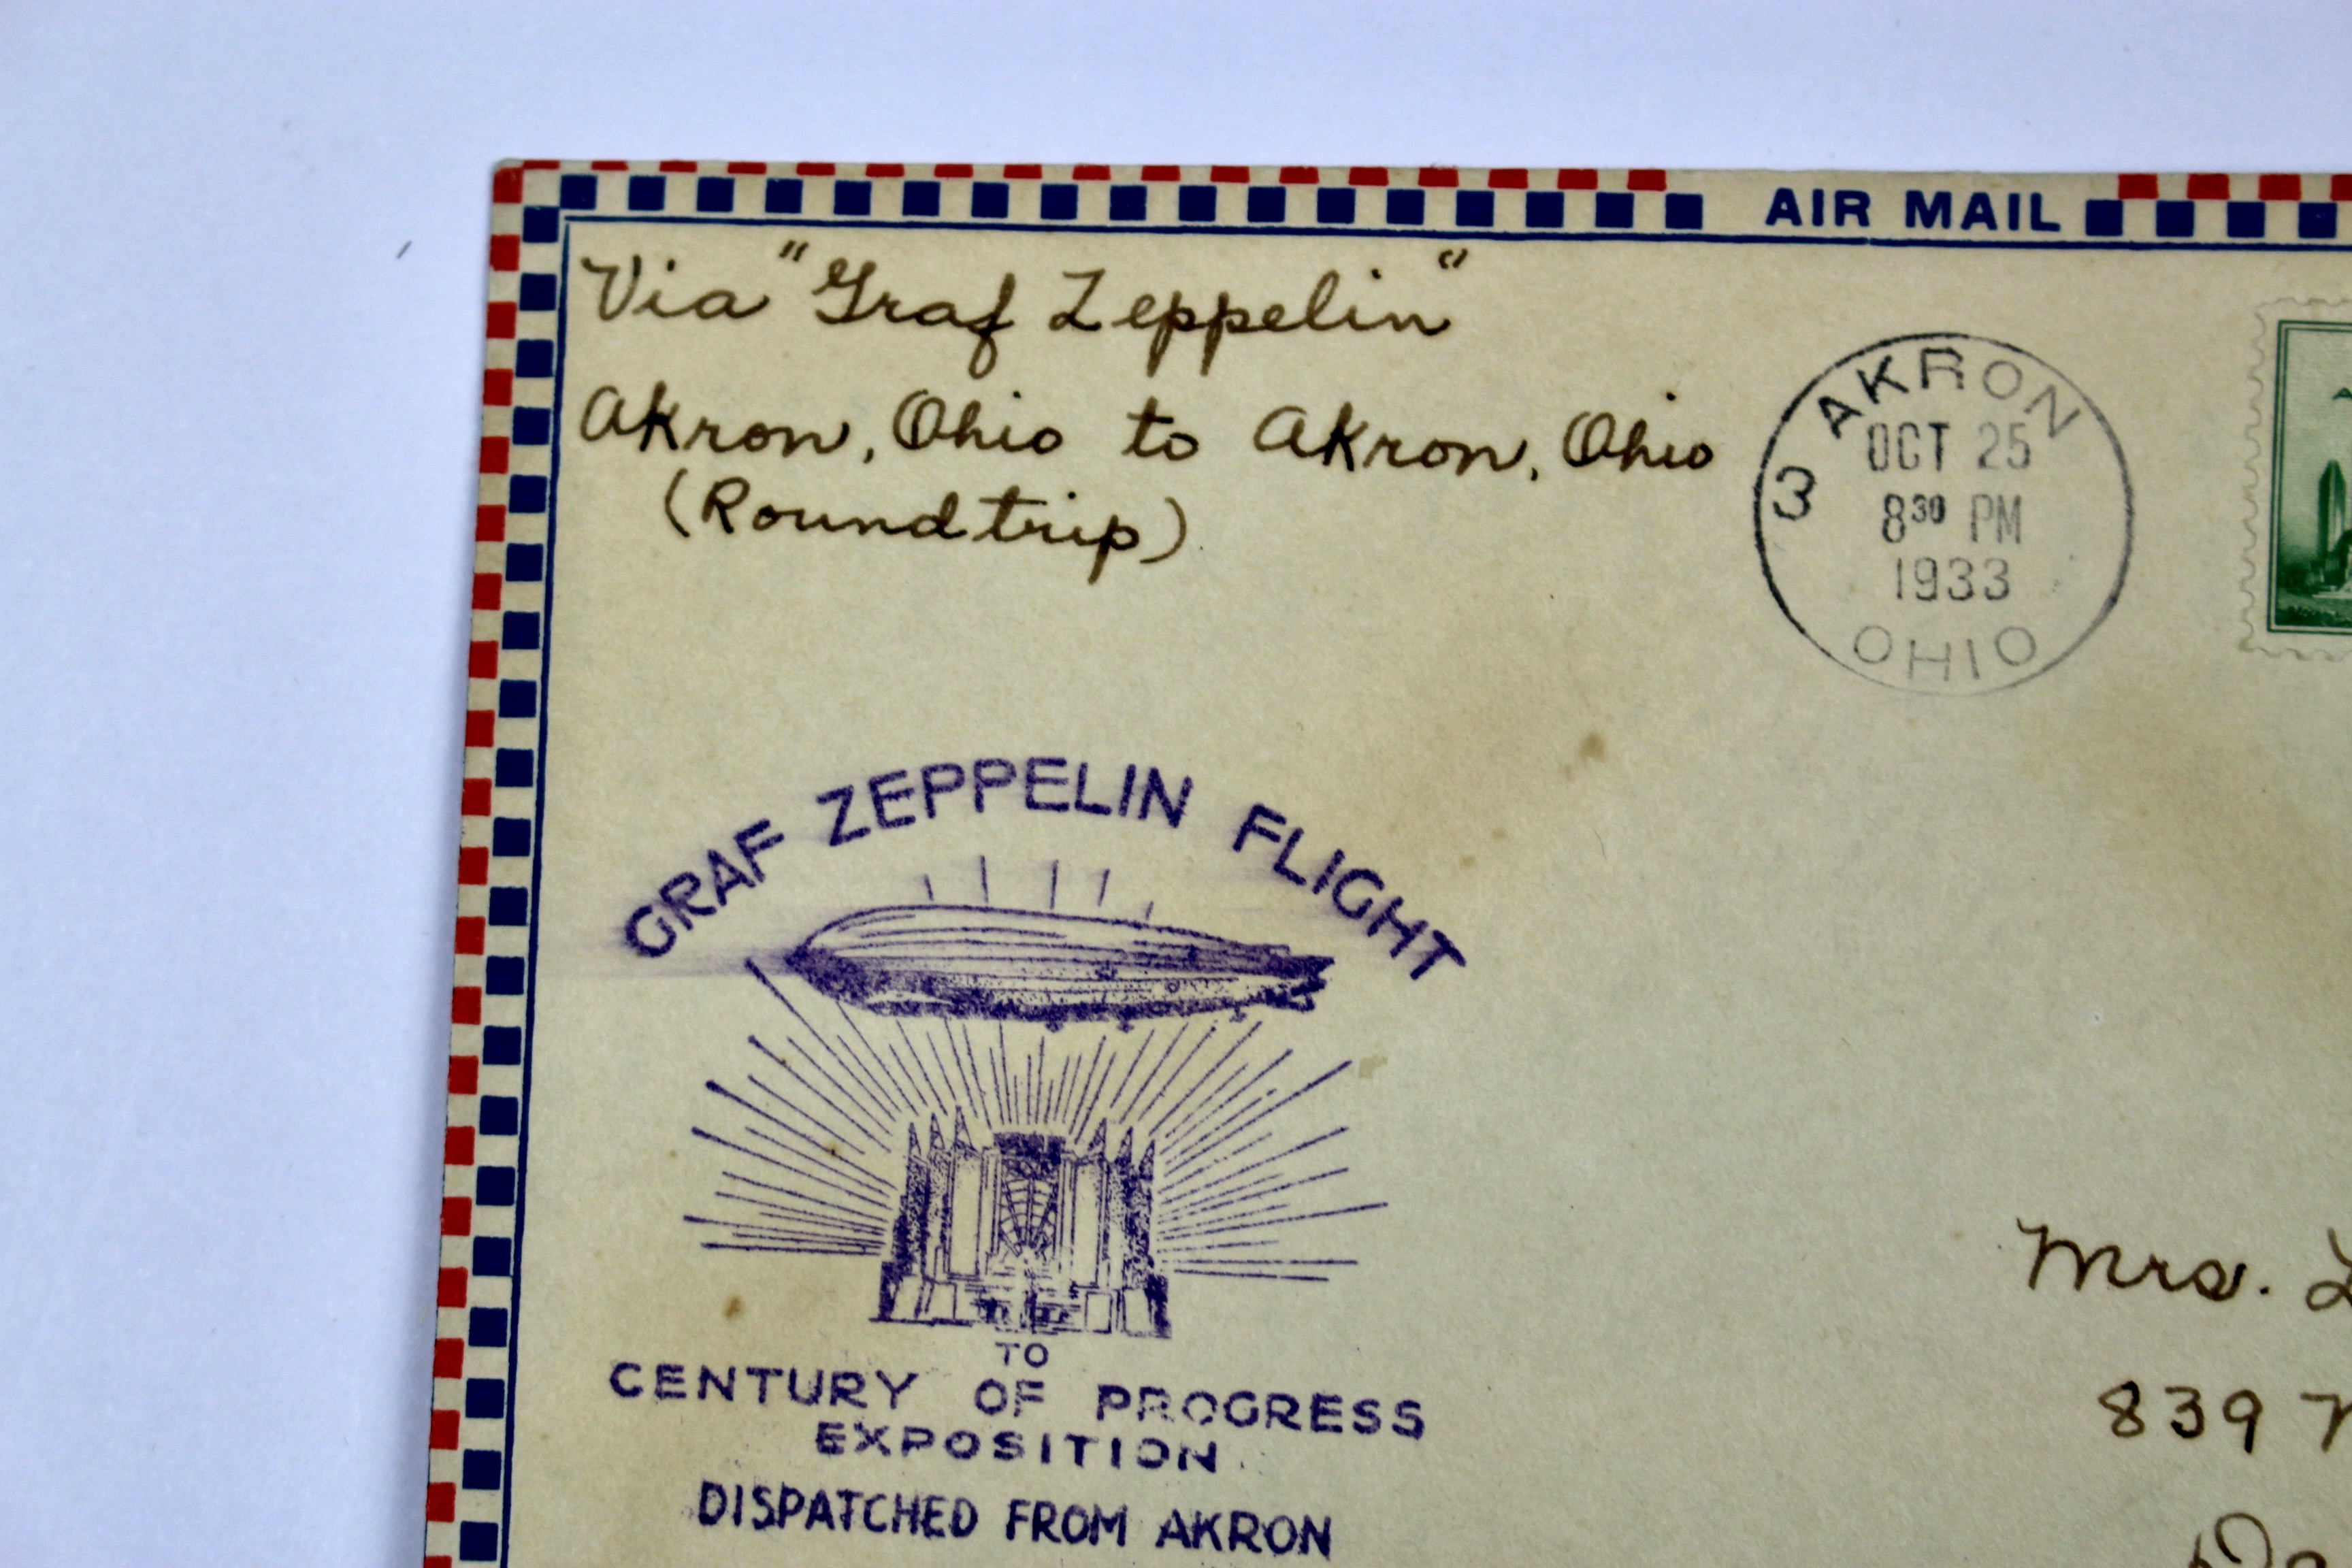 AIR MAIL
Via "Graf Zeppelin"
Akron, Ohio to Akron, Ohio
(Roundtrip)
3 AKRON
OCT 25
8³⁰ PM
1933
OHIO
GRAF ZEPPELIN FLIGHT
TO
CENTURY OF PROGRESS
EXPOSITION
DISPATCHED FROM AKRON
Mrs.
839